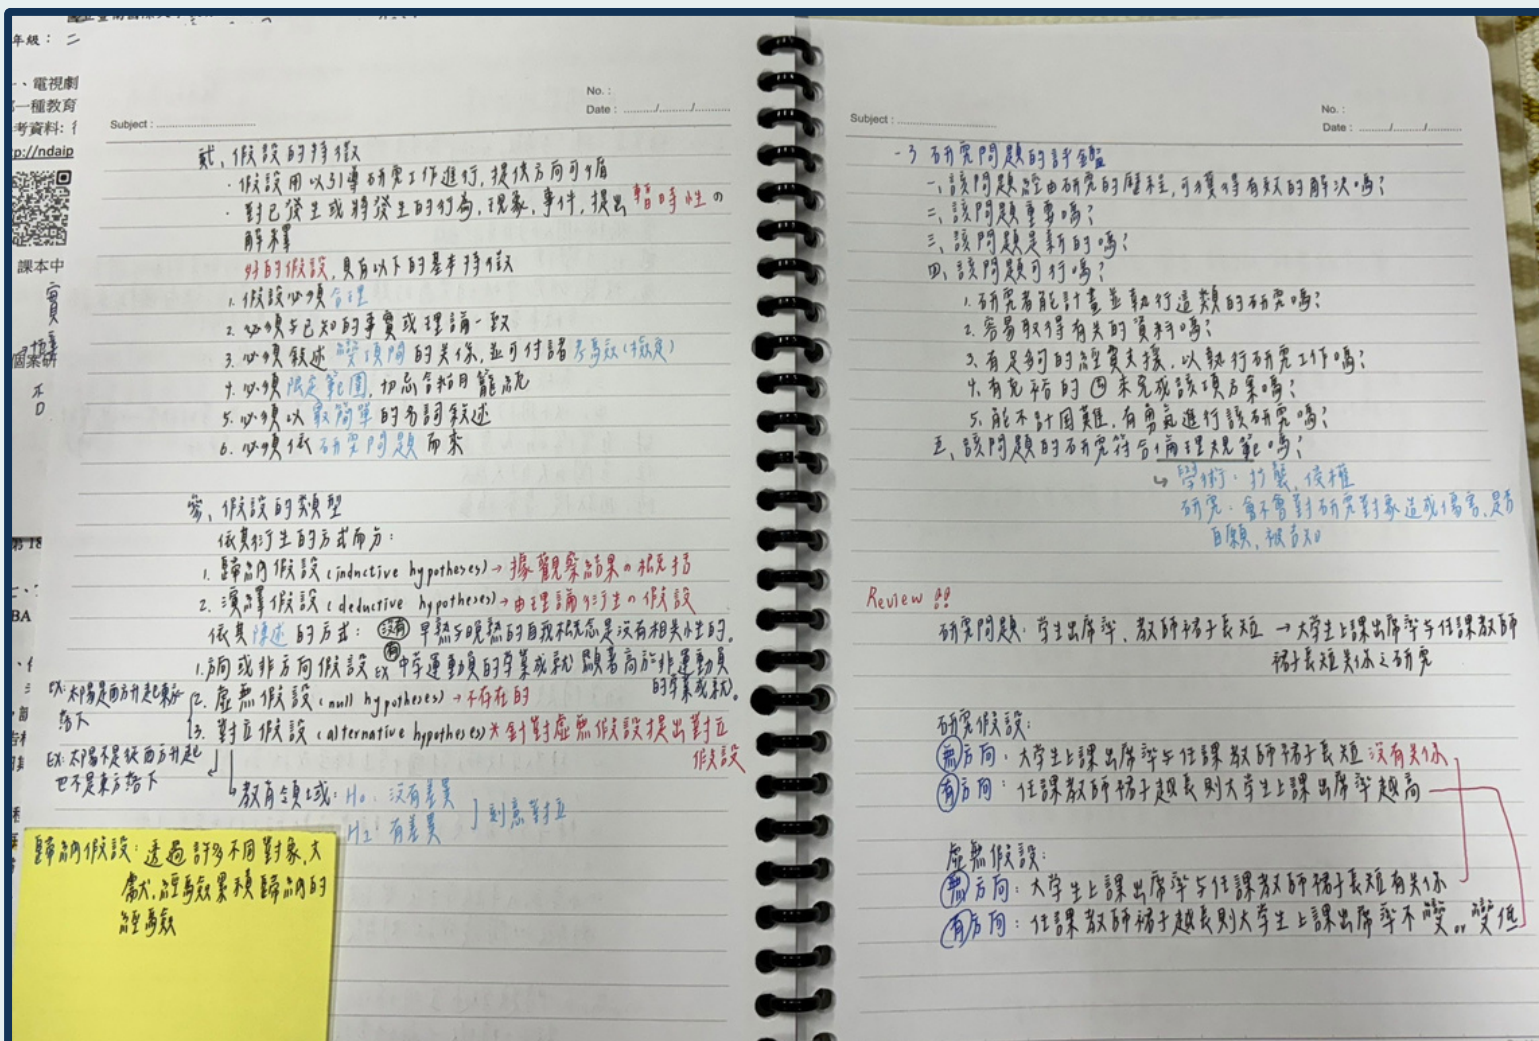 年級：二
一、電視劇
一種教育
考資料：
p://ndaip
課本中
個案研
第 18
BA
No. :
Date : ......../......../........
Subject : ..............................
貳、假設的特徵
· 假設用以引導研究工作進行，提供方向可循
· 對已發生或將發生的行為，現象，事件，提出暫時性の
解釋
好的假設，具有以下的基本特徵
1. 假設必須合理
2. 必須与已知的事實或理論一致
3. 必須敘述變項間的关係，並可付諸考驗(檢定)
4. 必須限定範圍，切忌含糊籠統
5. 必須以最簡單的名詞敘述
6. 必須依研究問題而來
參、假設的類型
依其衍生的方式而分：
1. 歸納假設 (inductive hypotheses) → 據觀察結果の概括
2. 演繹假設 (deductive hypotheses) → 由理論衍生の假設
依其陳述的方式： 沒有 早熟与晚熟的自我概念是沒有相关性的。
有
1. 方向或非方向假設 EX 中学運動員的学業成就顯著高於非運動員
的学業成就。
EX: 太陽是西方升起東方
落下
2. 虛無假設 (null hypotheses) → 不存在的
3. 對立假設 (alternative hypotheses) * 針對虛無假設提出對立
假設
EX: 太陽不是從西方升起
也不是東方落下
↳ 教育領域： H₀：沒有差異
H₁：有差異 ] 刻意對立
歸納假設：透過許多不同對象，文
獻，經驗累積歸納的
經驗
No. :
Date : ......../......../........
Subject : ..............................
-3 研究問題的評鑑
一、該問題經由研究的歷程，可獲得有效的解決嗎？
二、該問題重要嗎？
三、該問題是新的嗎？
四、該問題可行嗎？
1. 研究者能計畫並執行這類的研究嗎？
2. 容易取得有关的資料嗎？
3. 有足夠的經費支援，以執行研究工作嗎？
4. 有充裕的 來完成該項方案嗎？
5. 能不計困難，有勇氣進行該研究嗎？
五、該問題的研究符合倫理規範嗎？
↳ 學術：抄襲，侵權
研究：會不會對研究對象造成傷害，是否
自願，被告知
Review !!
研究問題：学生出席率、教師裙子長短 → 大学生上課出席率与任課教師
裙子長短关係之研究
研究假設：
無方向：大学生上課出席率与任課教師裙子長短沒有关係
有方向：任課教師裙子越長則大学生上課出席率越高
虛無假設：
無方向：大学生上課出席率与任課教師裙子長短有关係
有方向：任課教師裙子越長則大学生上課出席率不變 or 變低